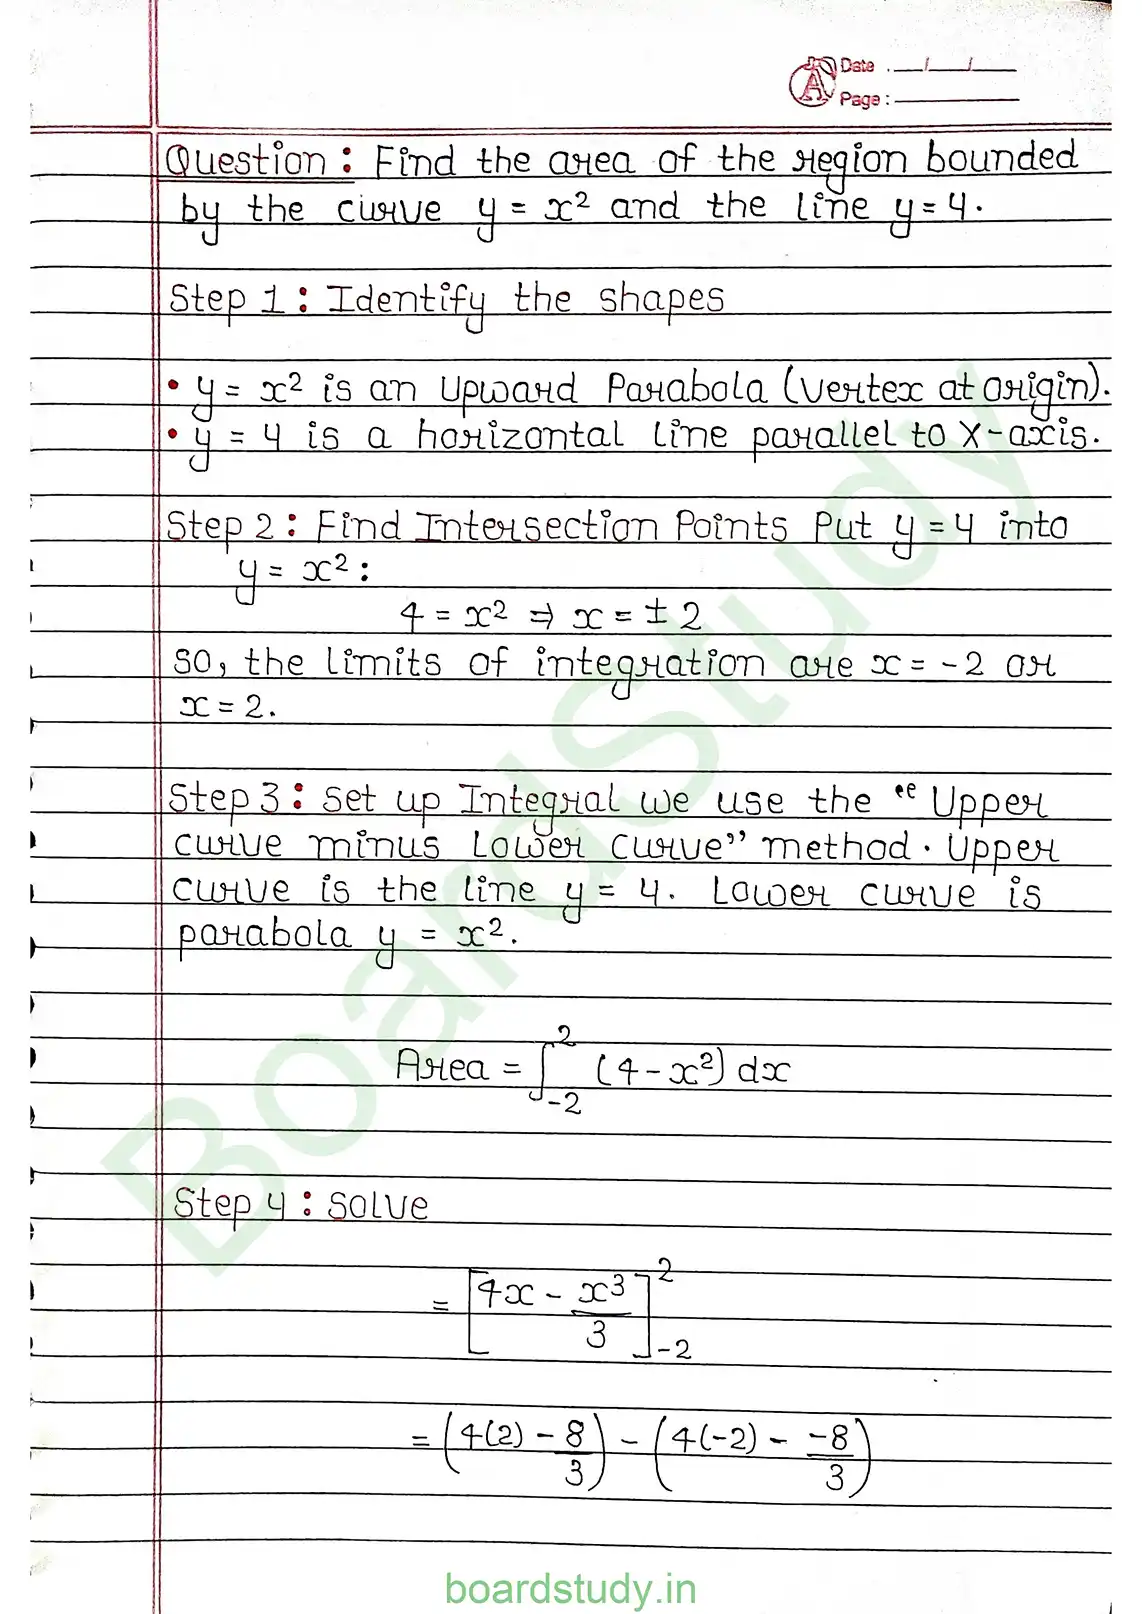 Date : __/__/__
Page :
Question : Find the area of the region bounded
by the curve y = x² and the line y = 4.
Step 1 : Identify the shapes
• y = x² is an upward Parabola (vertex at origin).
• y = 4 is a horizontal line parallel to X-axis.
Step 2 : Find Intersection Points Put y = 4 into
y = x² :
4 = x² ⇒ x = ± 2
so, the limits of integration are x = -2 or
x = 2.
Step 3 : set up Integral we use the “ Upper
curve minus Lower curve” method. Upper
curve is the line y = 4. Lower curve is
parabola y = x².
Area = ∫₋₂² (4 - x²) dx
Step 4 : solve
= [4x - x³/3]₋₂²
= (4(2) - 8/3) - (4(-2) - -8/3)
BoardStudy
boardstudy.in